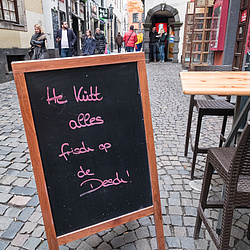 He Kütt
alles
frisch op
de
Desch!